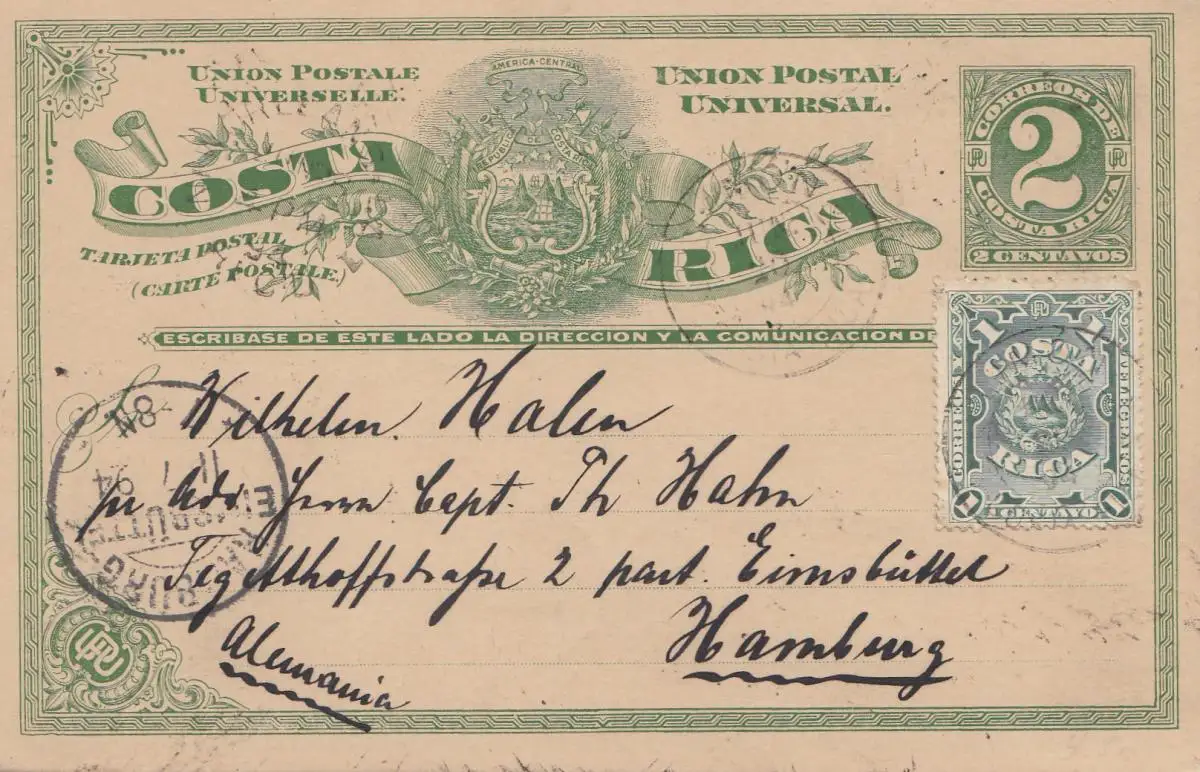 AMERICA-CENTRAL
UNION POSTALE
UNIVERSELLE.
UNION POSTAL
UNIVERSAL.
REPUBLICA DE COSTA RICA
COSTA RICA
TARJETA POSTAL
(CARTE POSTALE)
CORREOS DE
2
COSTA RICA
2 CENTAVOS
ESCRIBASE DE ESTE LADO LA DIRECCION Y LA COMUNICACION DE
UPU
1 1
COSTA
CORREOS Y TELEGRAFOS
RICA
1 1
1 CENTAVO
Wilhelm. Halen
pr Adr. Herrn Capt. Th Hahn
Tegetthoffstraße 2 part. Eimsbüttel
Hamburg
Alemania
8N
11 1 94
EIMSBÜTTEL
HAMBURG
UPU